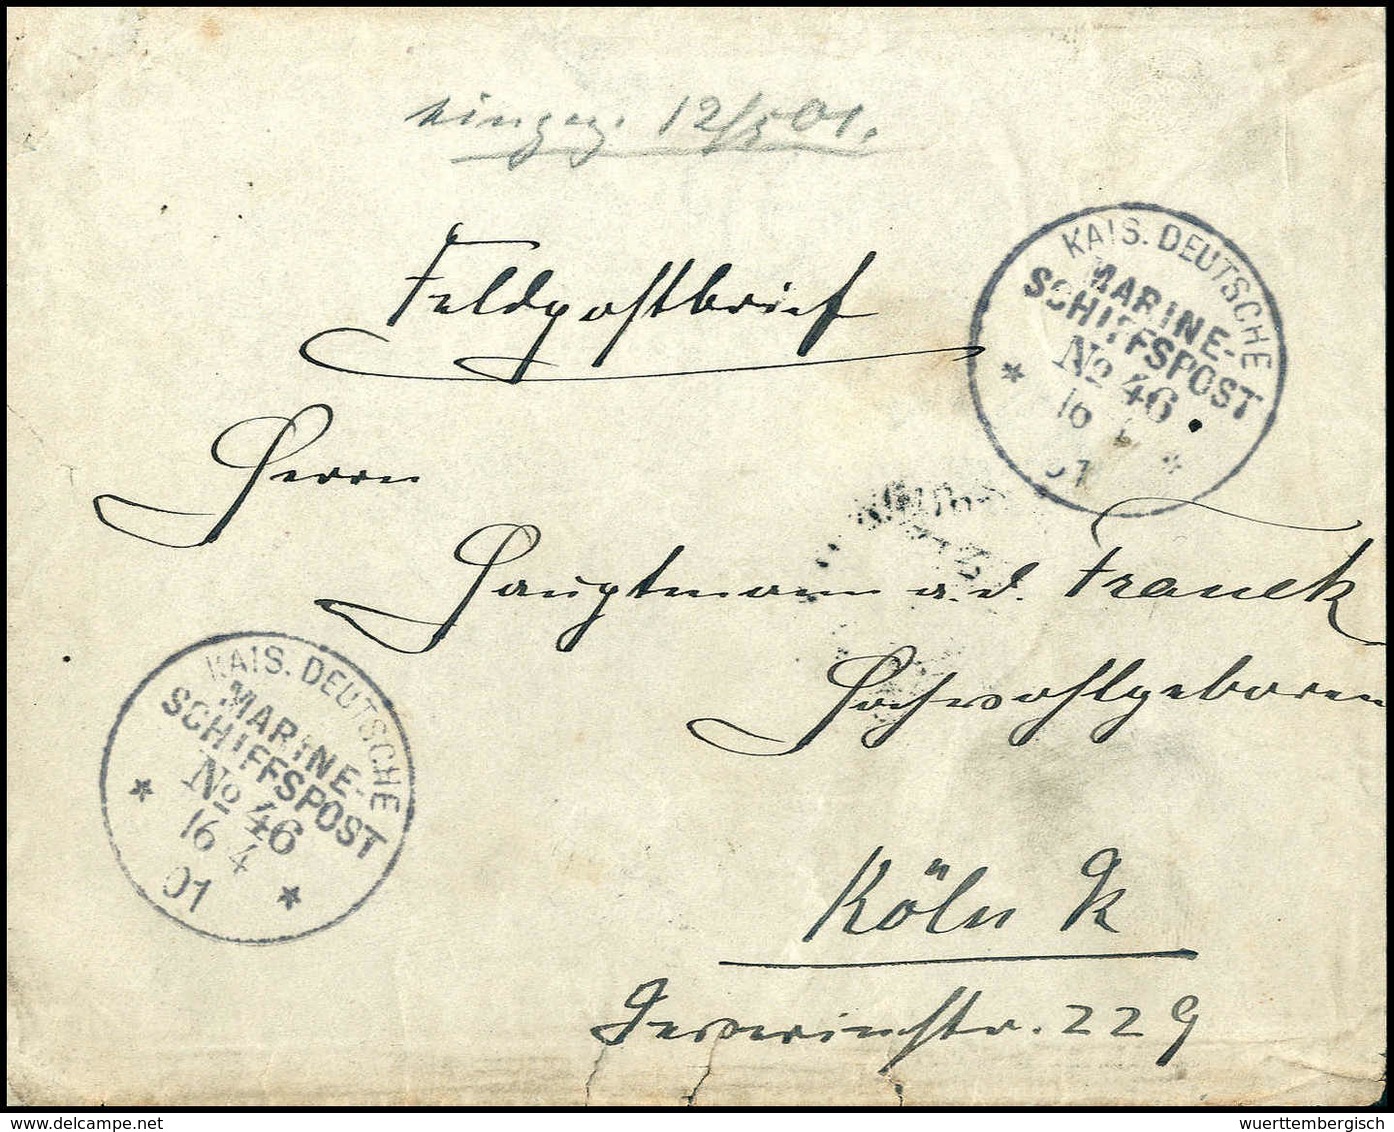 eingeg. 12/5 01.
Feldpostbrief
KAIS. DEUTSCHE
MARINE-
SCHIFFSPOST
No 46
16 4
01
Herrn
Hauptmann a. d. Franck
Hochwohlgeboren
KAIS. DEUTSCHE
MARINE-
SCHIFFSPOST
No 46
16 4
01
Köln
Severinstr. 229
wuerttembergisch